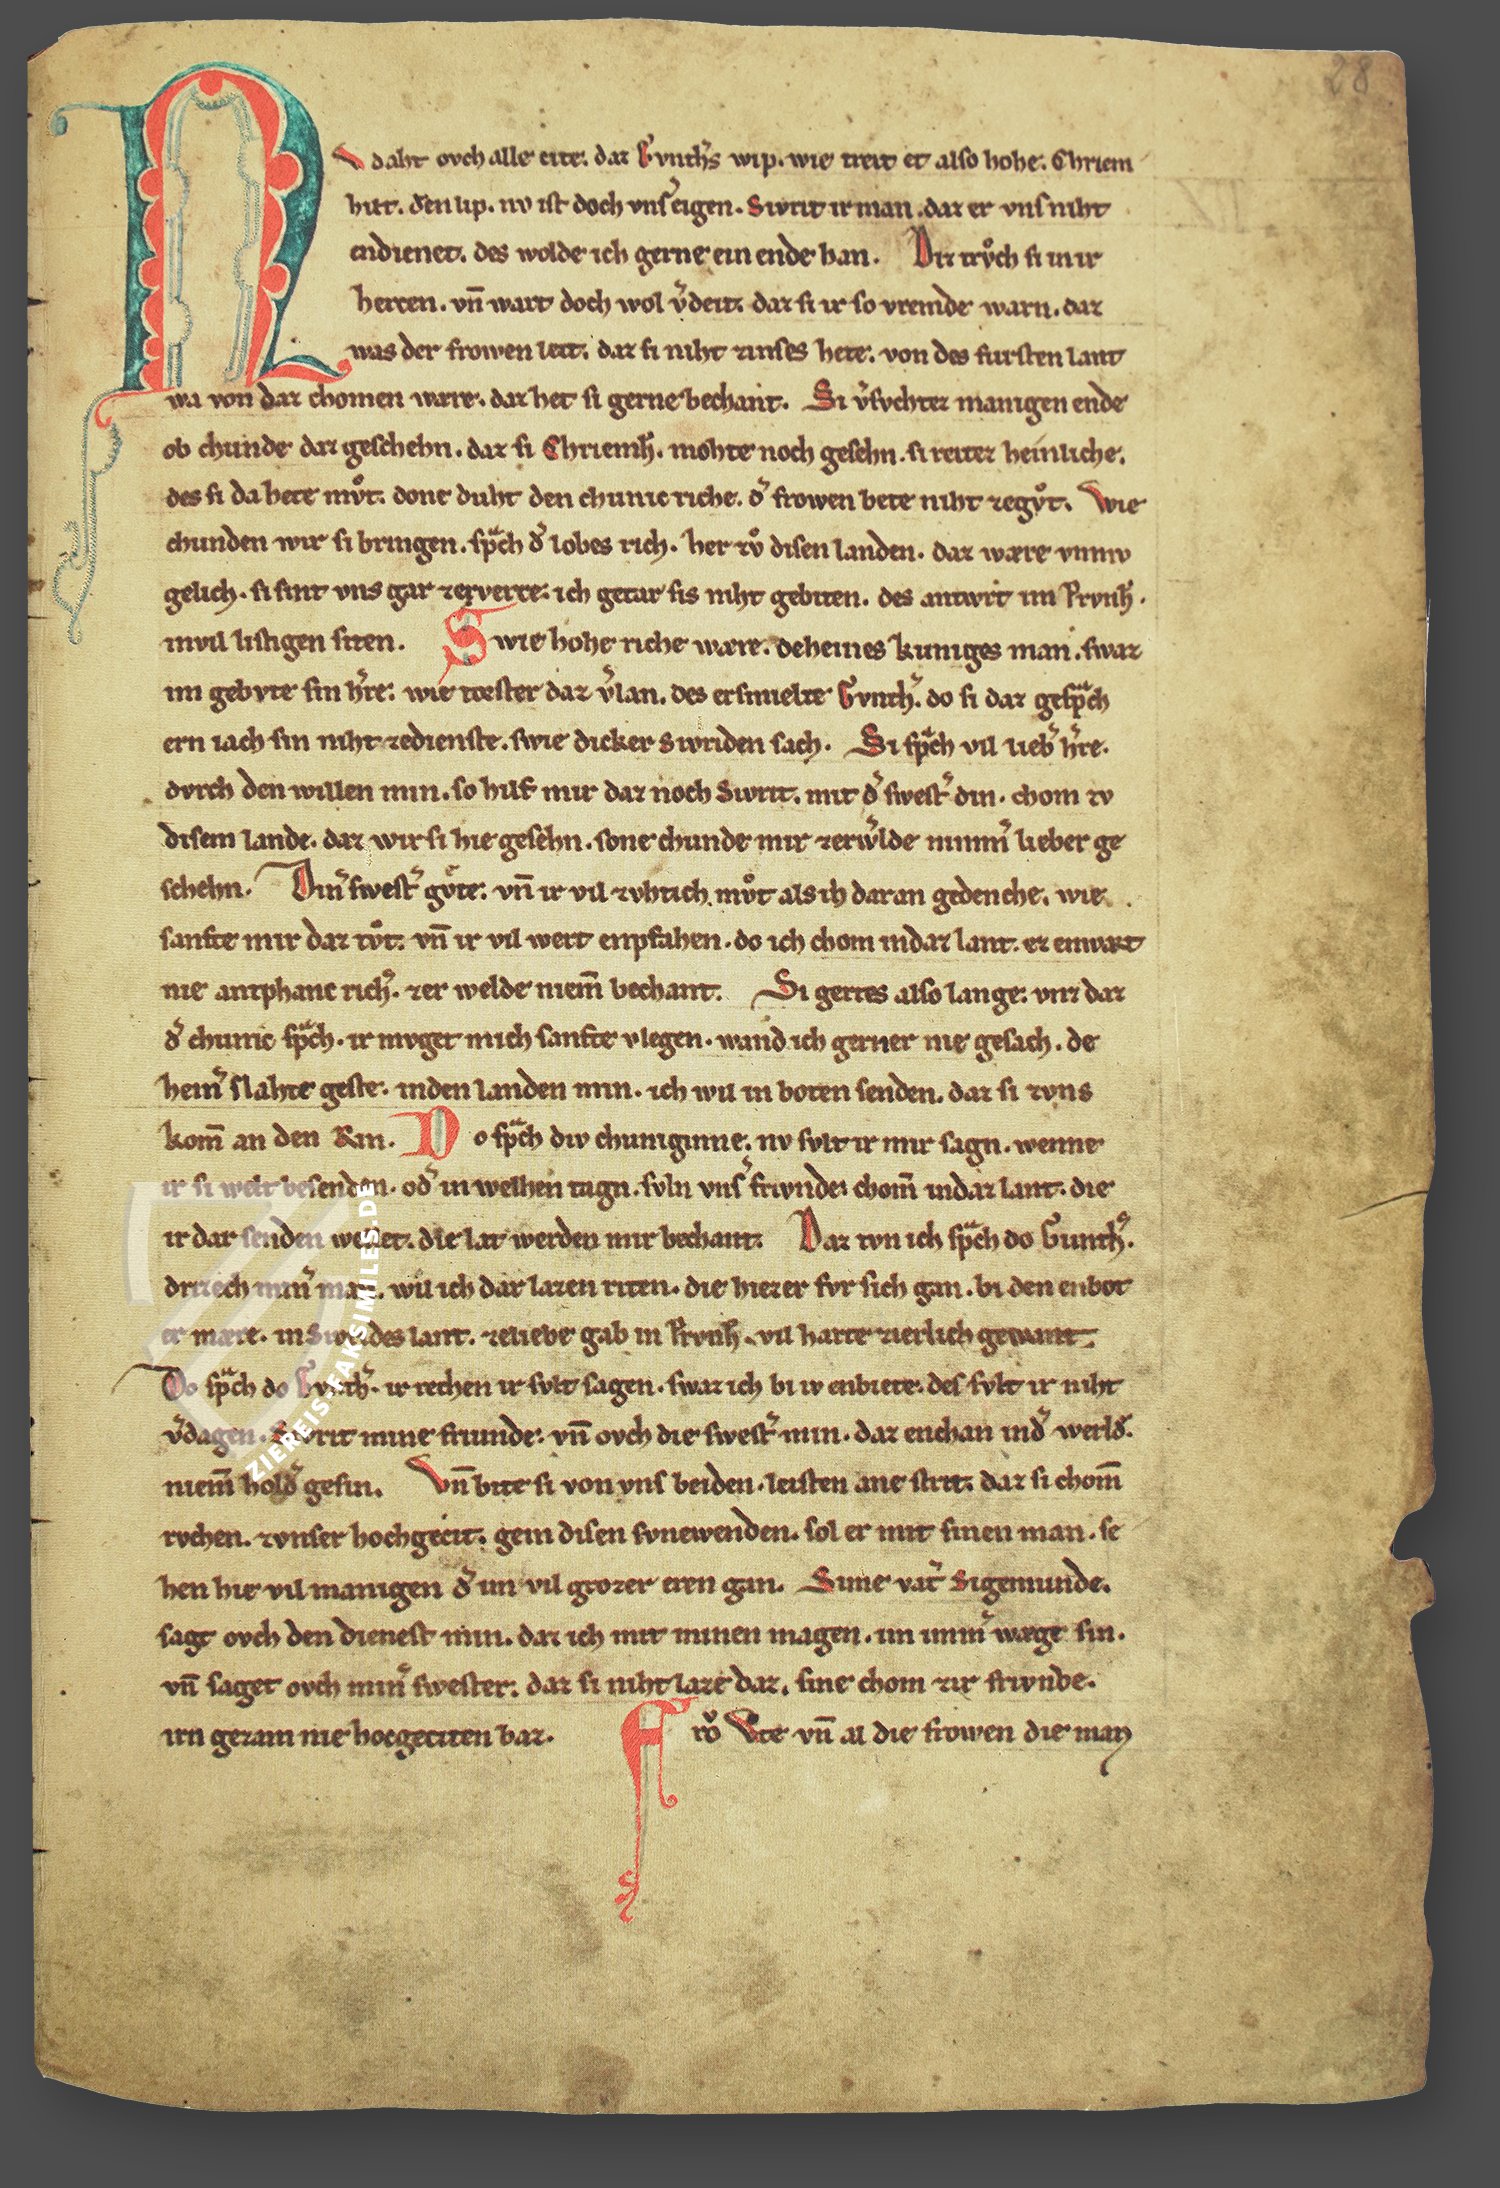 28
NV daht ovch alle cite. daz Gvnthͤs wip. wie treit et also hohe. Chriem
hilt. den lip. nv ist doch vnſ͛ eigen. Sivrit ir man. daz er vnſ niht
endienet. des wolde ich gerne ein ende han. Diz trvͦch si in ir
herzen. vn̄ wart doch wol v͛deit. daz si ir so vremde warn. daz
was der frowen leit. daz si niht zinses hete. von des fursten lant
wa von daz chomen wære. daz het si gerne bechant. Si v͛svchtez manigen ende
ob chunde daz geschehn. daz si Chriemh̄. mohte noch gesehn. si reitez heinliche.
des si da hete mvͦt. done duht den chunic riche. d͛ frowen bete niht zegvͦt. Wie
chunden wir si bringen. sp̄ch d͛ lobes rich. her zvͦ disen landen. daz wære vnmv
gelich. si sint vns gar zeverre. ich getar sis niht gebiten. des antwrt im Prvnh̄.
in vil listigen siten. Swie hohe riche wære. deheines kuniges man. swaz
im gebvte sin h͛re. wie wester daz v͛lan. des ersmielte Gvnth͛. do si daz gesp̄ch
ern iach sin niht zedienste. swie dicker Sivriden sach. Si sp̄ch vil lieb͛ h͛re.
dvrch den willen min. so hilf mir daz noch Sivrit. mit d͛ swest͛ din. chom zv
disem lande. daz wir si hie gesehn. sone chunde mir zerw͛lde nimm͛ lieber ge
schehn. Din͛ swest͛ gvͦte. vn̄ ir vil zvhtich mvͦt als ih daran gedenche. wie
sanfte mir daz tvͦt. vn̄ ir vil wert enpfahen. do ich chom indaz lant. ez enwart
nie antphanc rich͛. zer welde niem̄ bechant. Si gertes also lange. vnz daz
d͛ chunic sp̄ch. ir mvget mich sanfte vlegen. wand ich gerner nie gesach. de
hein͛ slahte geste. inden landen min. ich wil in boten senden. daz si zvns
kom̄ an den Rin. Do sp̄ch div chuniginne. nv svlt ir mir sagn. wenne
ir si welt besenden. od͛ in welhen tagn. svln vnſ͛ frivnde chom̄ indaz lant. die
ir dar senden wellet. die lat werden mir bechant. Daz tvn ich sp̄ch do Gunth͛.
drizech min͛ man. wil ich dar lazen riten. die hiezer fvr sich gan. bi den enbot
er mære. in Sivrides lant. zeliebe gab in Prvnh̄. vil harte zierlich gewant.
Do sp̄ch do Gvnth͛. ir rechen ir svlt sagen. swaz ich bi iv enbiete. des svlt ir niht
v͛dagen. Sivrit mine friunde. vn̄ ovch die swest͛ min. daz enchan ind͛ werld͛.
niem̄ hold͛ gesin. Vn̄ bite si von vnſ beiden. leisten ane strit. daz si chom̄
rvchen. zvnser hochgecit. gein disen svnewenden. sol er mit sinen man. se
hen hie vil manigen d͛ im vil grozer eren gan. Sime vat͛ Sigemunde.
sagt ovch den dienest min. daz ich mit minen magen. im imm͛ wæge sin.
vn̄ saget ovch min͛ swester. daz si niht laze daz. sine chom zir frivnde.
irn gezam nie hocgeciten baz. Froͮ Vte vn̄ al die frowen die man
ZIEREIS-FAKSIMILES.DE